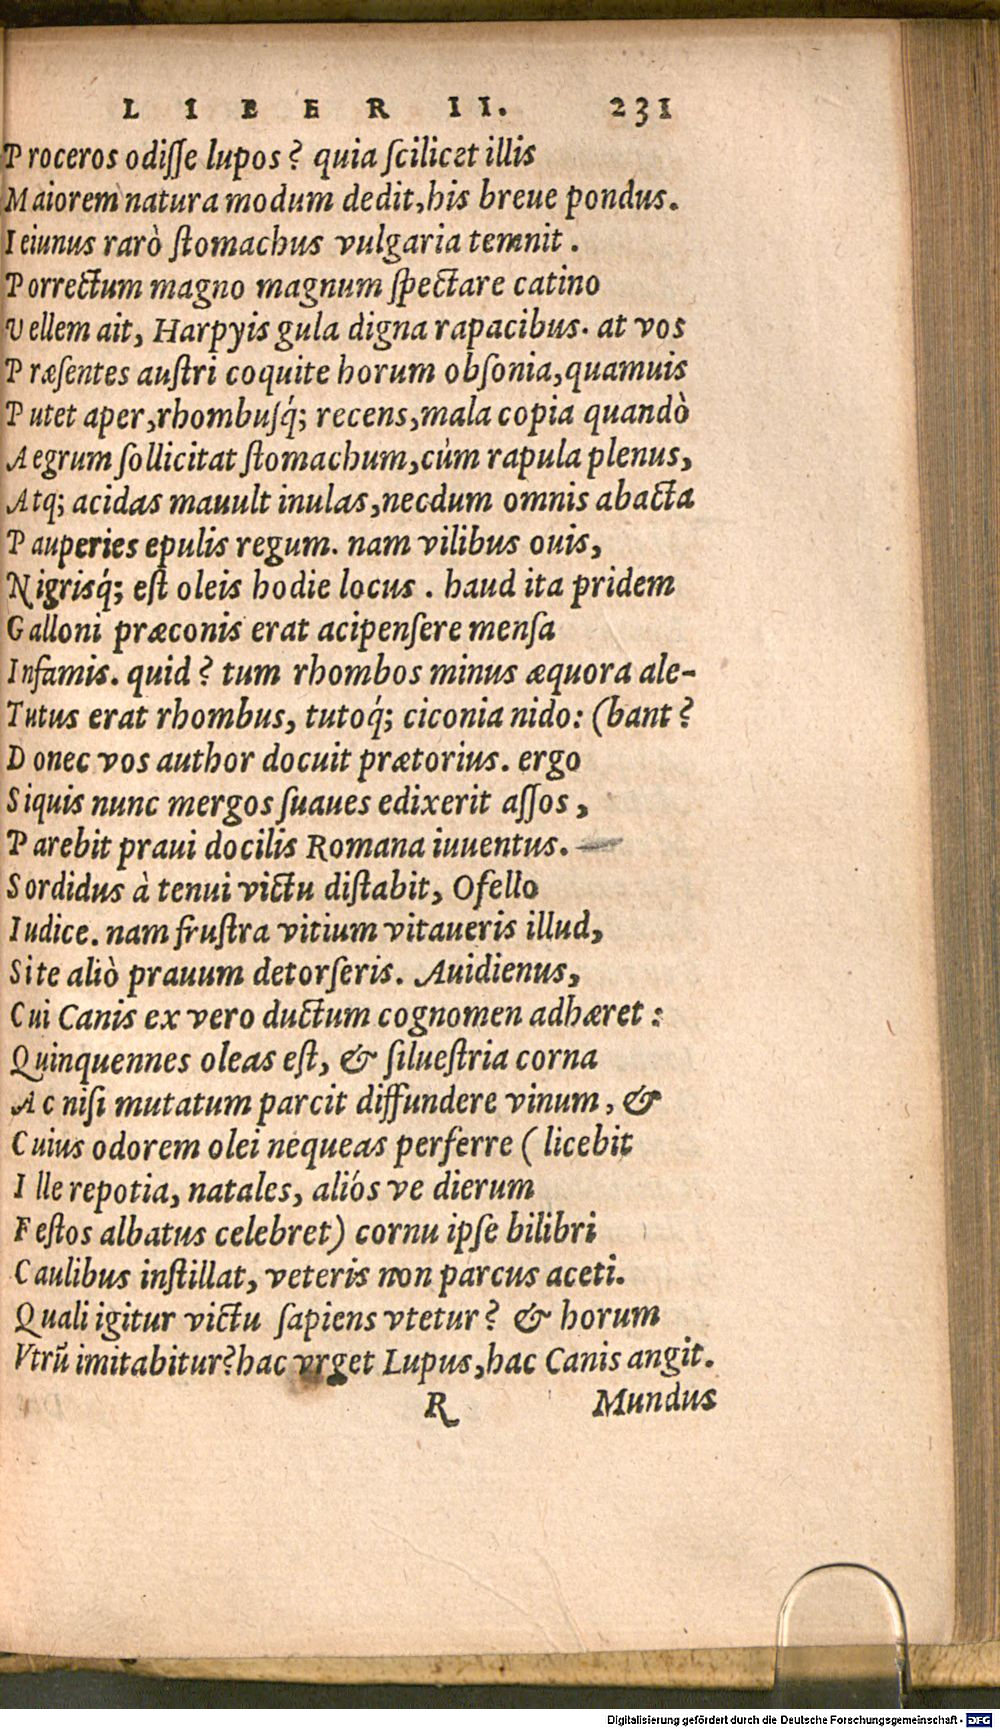 LIBER II. 231
Proceros odiſſe lupos? quia ſcilicet illis
Maiorem natura modum dedit, his breue pondus.
Ieiunus rarò ſtomachus vulgaria temnit.
Porrectum magno magnum ſpectare catino
Vellem ait, Harpyis gula digna rapacibus. at vos
Præſentes auſtri coquite horum obſonia, quamuis
Putet aper, rhombuſq́; recens, mala copia quandò
Aegrum ſollicitat ſtomachum, cùm rapula plenus,
Atq; acidas mauult inulas, necdum omnis abacta
Pauperies epulis regum. nam vilibus ouis,
Nigrisq́; eſt oleis hodie locus. haud ita pridem
Galloni præconis erat acipenſere menſa
Infamis. quid? tum rhombos minus æquora ale-
Tutus erat rhombus, tutoq́; ciconia nido: (bant?
Donec vos author docuit prætorius. ergo
Siquis nunc mergos ſuaues edixerit aſſos,
Parebit praui docilis Romana iuuentus.
Sordidus à tenui victu diſtabit, Ofello
Iudice. nam fruſtra vitium vitaueris illud,
Si te aliò prauum detorſeris. Auidienus,
Cui Canis ex vero ductum cognomen adhæret:
Quinquennes oleas eſt, & ſilueſtria corna
Ac niſi mutatum parcit diffundere vinum, &
Cuius odorem olei nequeas perferre (licebit
Ille repotia, natales, aliós ve dierum
Feſtos albatus celebret) cornu ipſe bilibri
Caulibus inſtillat, veteris non parcus aceti.
Quali igitur victu ſapiens vtetur? & horum
Vtrū imitabitur? hac vrget Lupus, hac Canis angit.
R Mundus
Digitalisierung gefördert durch die Deutsche Forschungsgemeinschaft - DFG